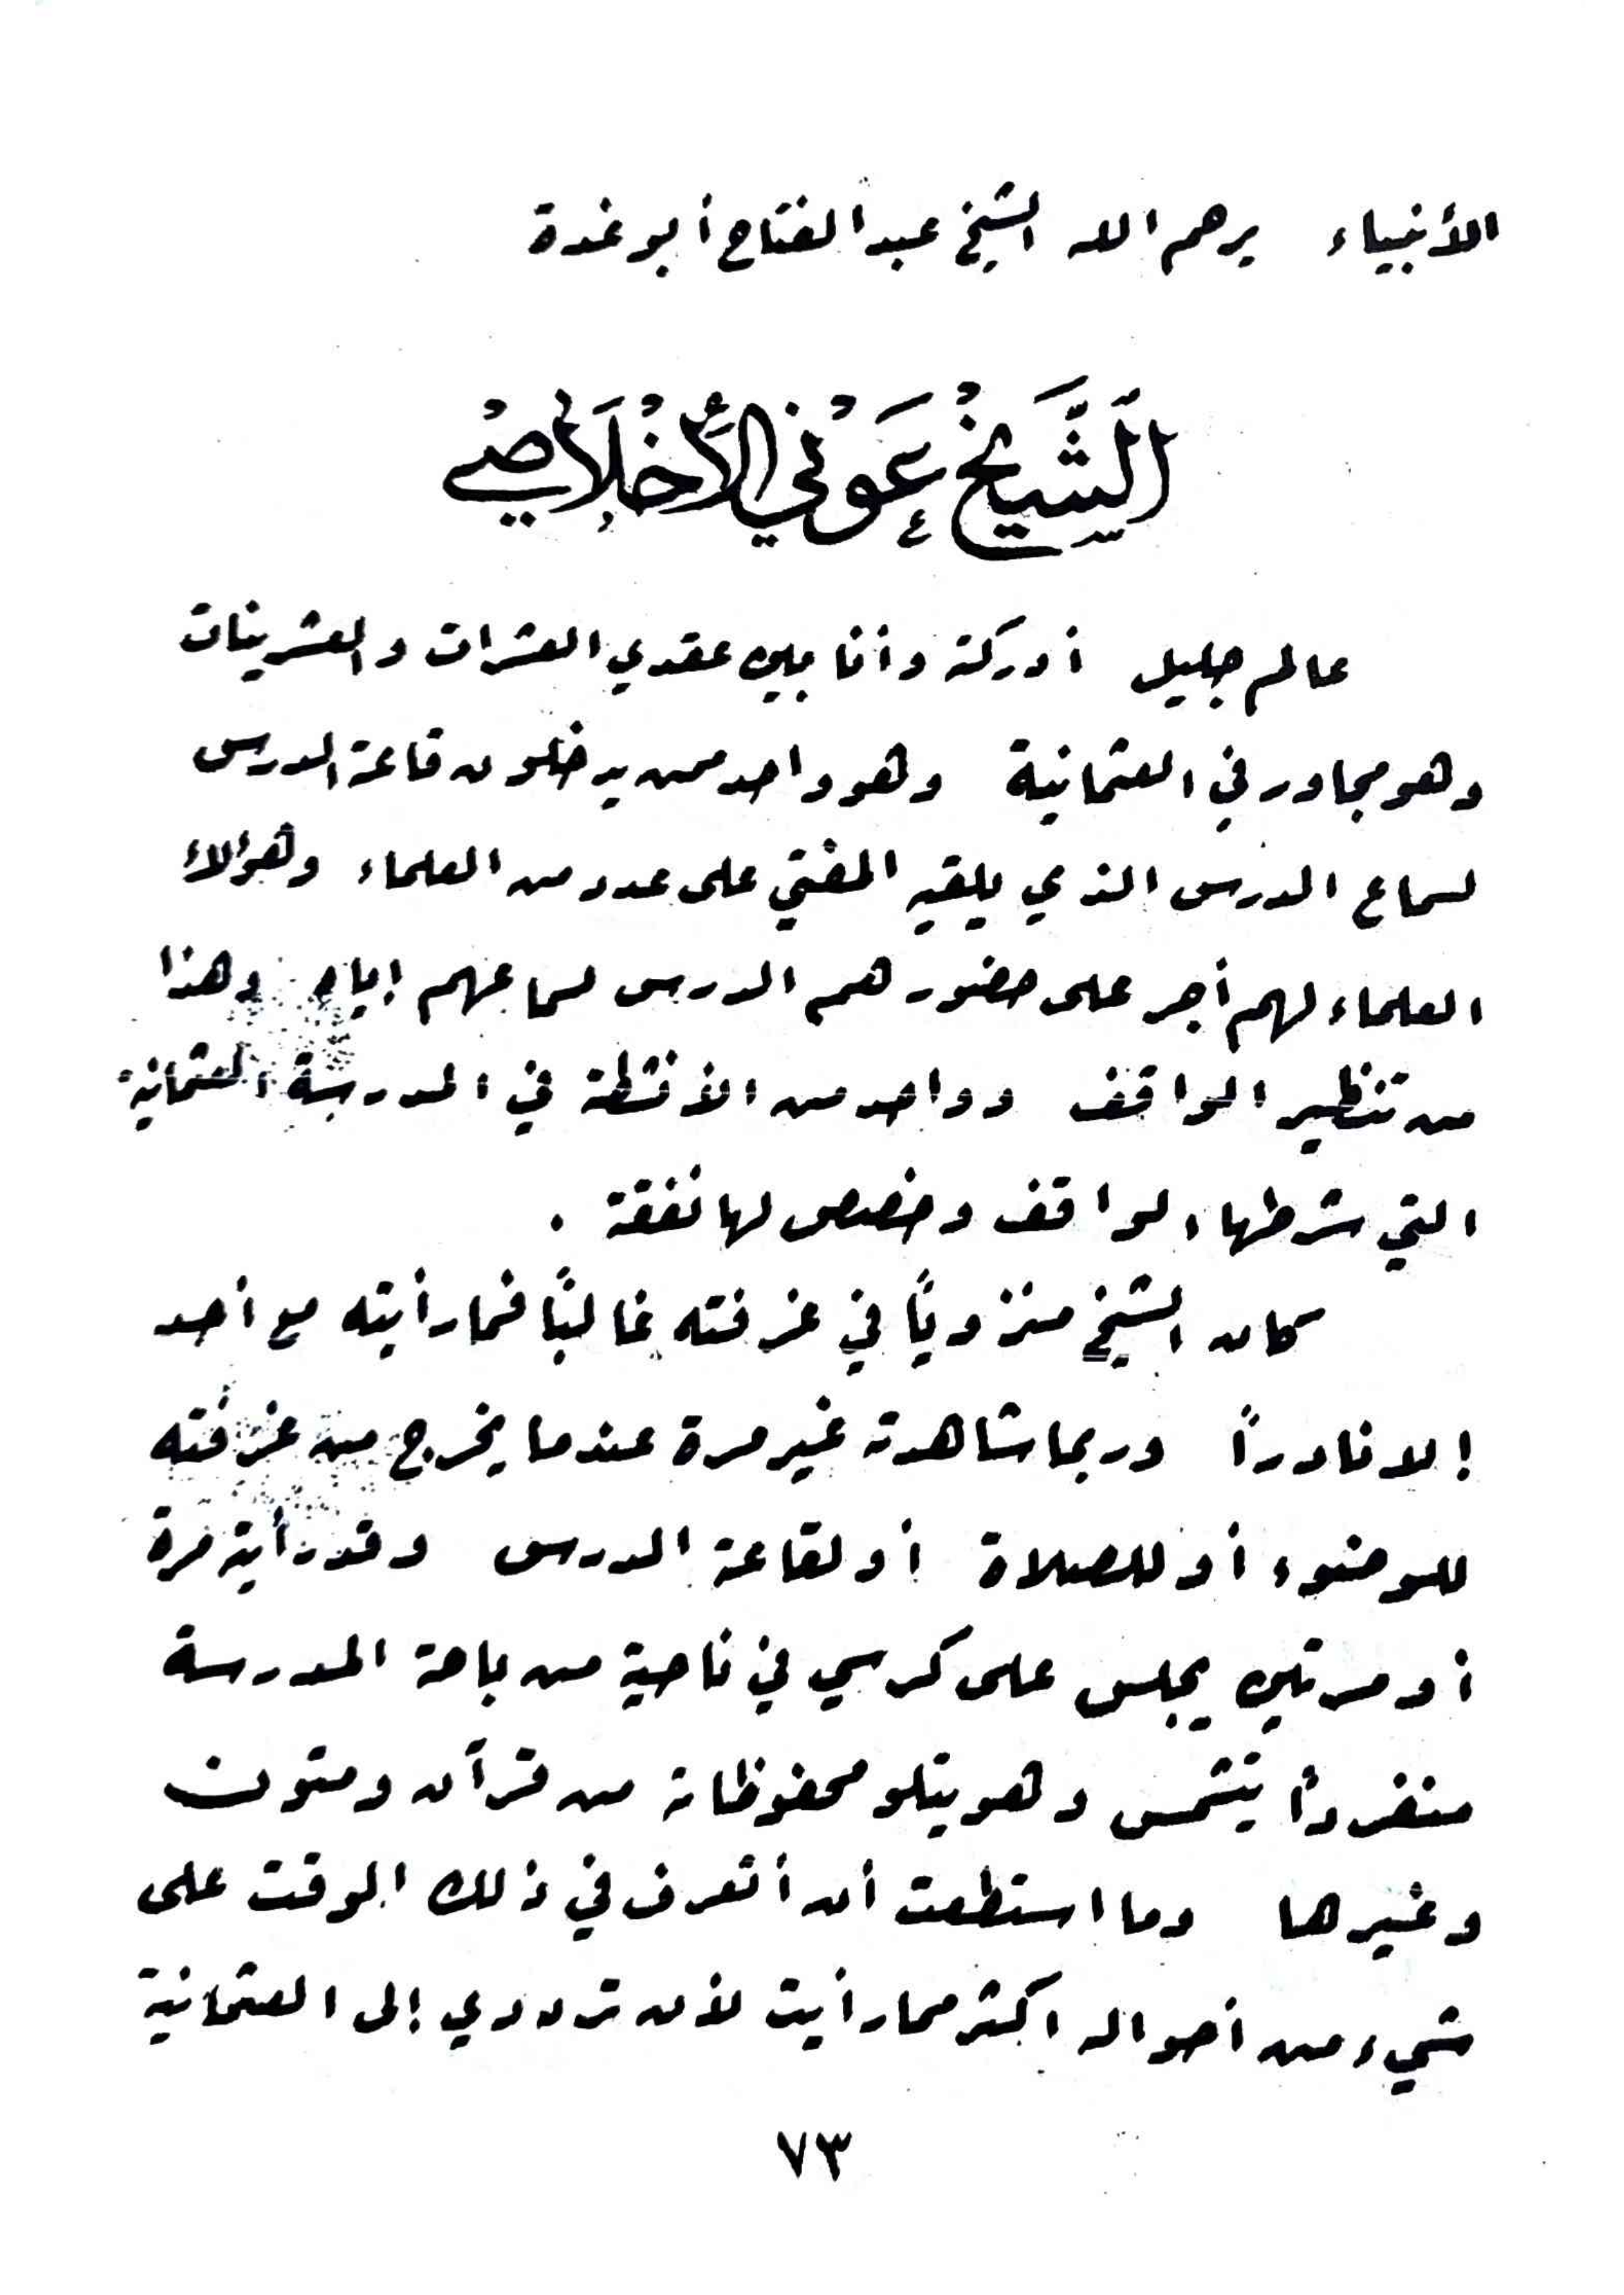 الأنبياء يرحم الله الشيخ عبد الفتاح أبو غدة
اَلشَّيْخْ عَوْني الْأُخْلَاصِيْ
عالم جليل أدركته وأنا بين عقدي العشرات والعشرينات
وهو مجاور في العثمانية وهو واحد ممن يدخلون قاعة الدرس
لسماع الدرس الذي يلقيه المفتي على عدد من العلماء وهؤلاء
العلماء لهم أجر على حضورهم الدرس لسماعهم إياه وهذا
من تنظير الواقف وواحد من الأنشطة في المدرسة العثمانية
التي شرطها الواقف وخصص لها نفقة .
كان الشيخ منزوياً في غرفته غالباً فما رأيته مع أحد
إلا نادراً وربما شاهدته غير مرة عندما يخرج من غرفته
للوضوء أو للصلاة أو لقاعة الدرس وقد رأيته مرة
أو مرتين يجلس على كرسي في ناحية من باحة المدرسة
منفرداً يتشمس وهو يتلو محفوظاته من قرآن ومتون
وغيرها وما استطعت أن أتعرف في ذلك الوقت على
شيء من أحواله اكثر مما رأيت لأن ترددي إلى العثمانية
٧٣